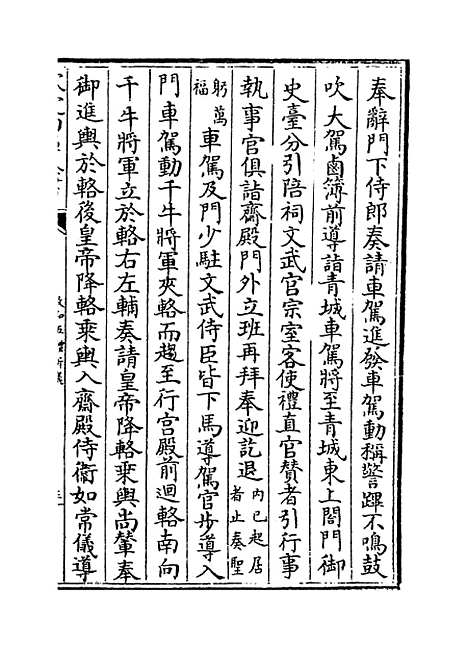 奉辭門下侍郎奏請車駕進發車駕動稱警蹕不鳴鼓
吹大駕鹵簿前導詣青城車駕將至青城東上閤門御
史臺分引陪祠文武官宗室客使禮直官贊者引行事
執事官俱詣齋殿門外立班再拜奉迎訖退內已起居者止奏聖
躬萬福車駕及門少駐文武侍臣皆下馬導駕官步導入
門車駕動千牛將軍夾輅而趨至行宮殿前迴輅南向
千牛將軍立於輅右左輔奏請皇帝降輅乘輿尚輦奉
御進輿於輅後皇帝降輅乘輿入齋殿侍衛如常儀導
政和五禮新儀